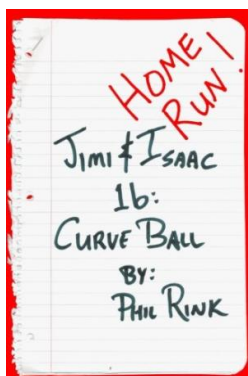 HOME
RUN!
JIMI & ISAAC
1b:
CURVE BALL
BY:
PHIL RINK